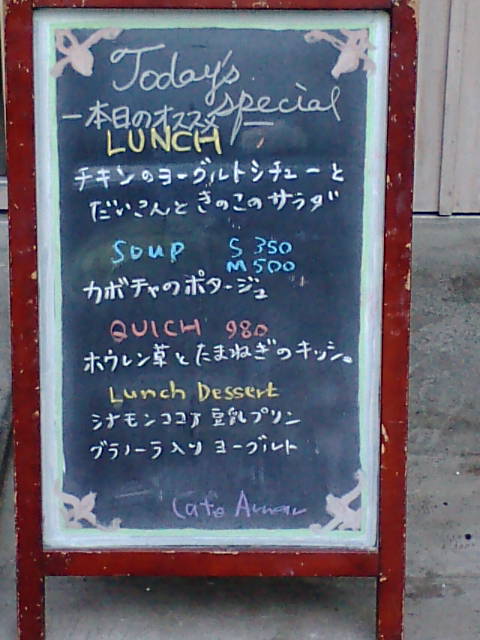 Today's
special
本日のオススメ
LUNCH
チキンのヨーグルトシチューと
だいこんときのこのサラダ
SOUP S 350
M 500
カボチャのポタージュ
QUICH 980
ホウレン草とたまねぎのキッシュ。
Lunch Dessert
シナモンココア豆乳プリン
グラノーラ入り ヨーグルト
Cafe